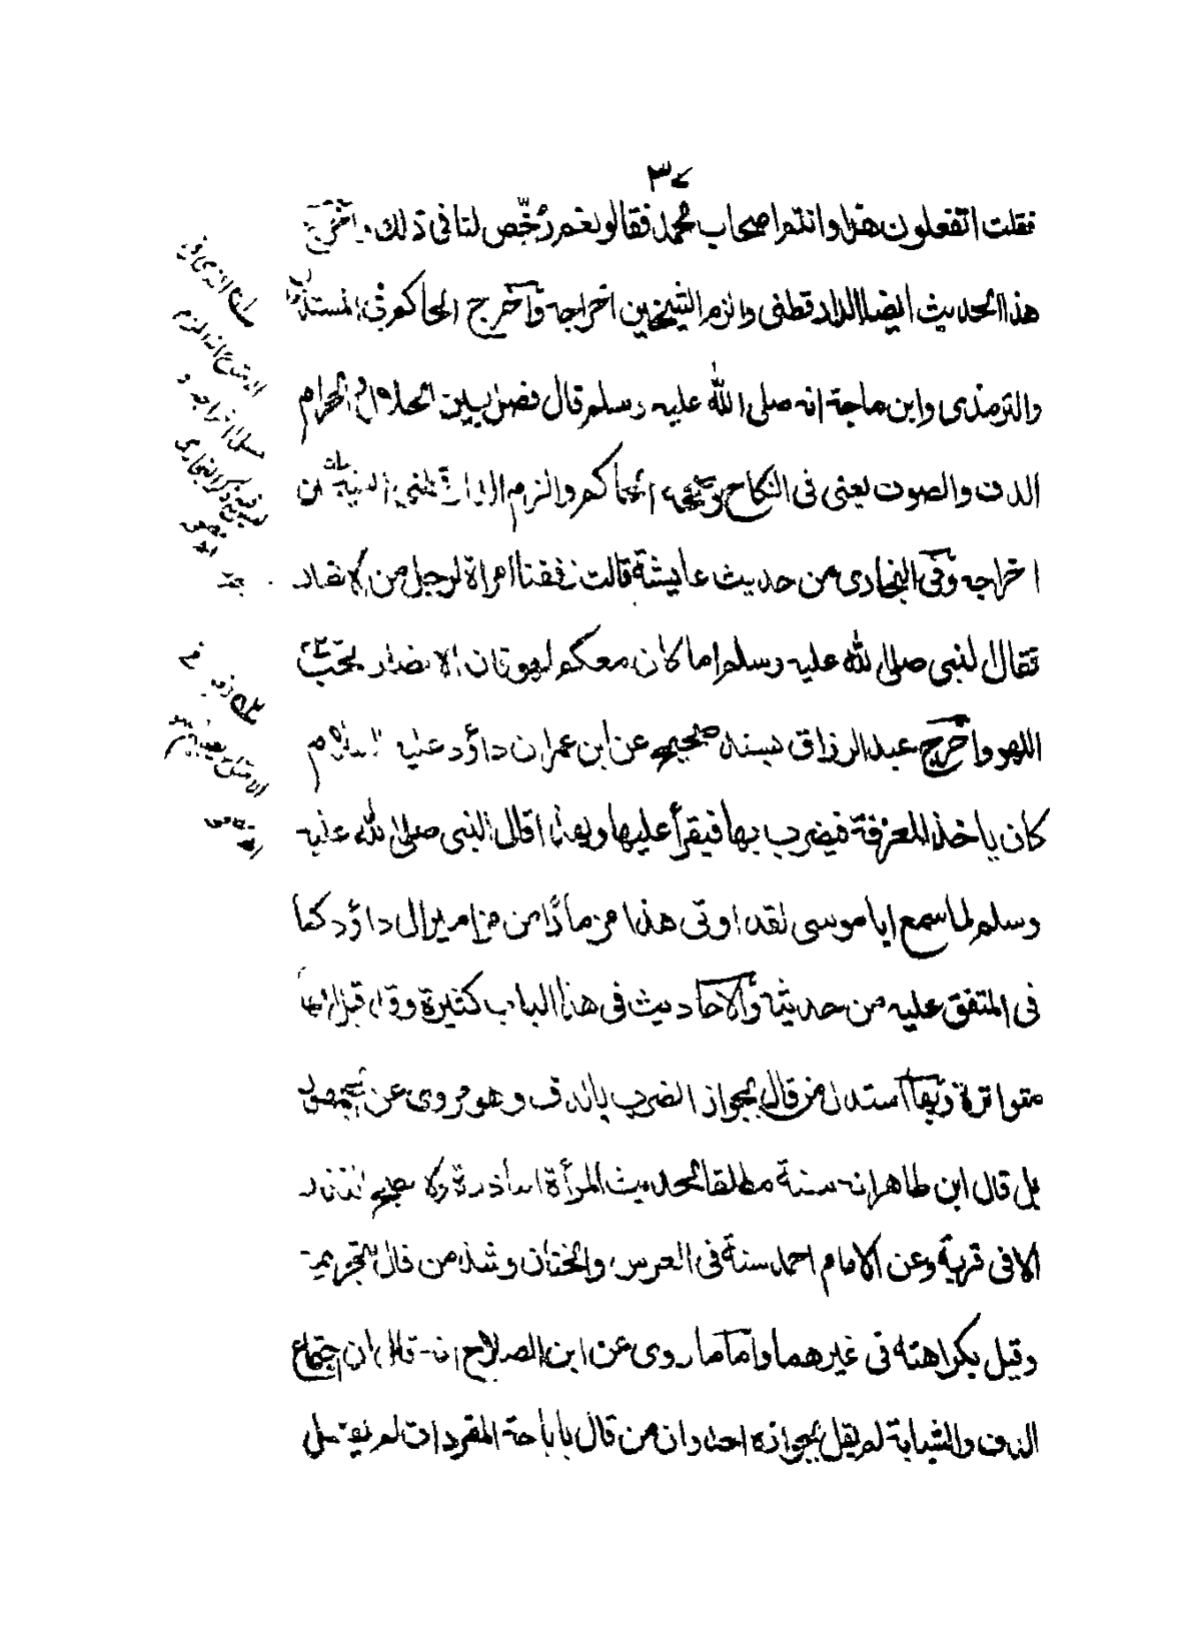 ٣٧
فقلت اتفعلون هذا وانتم اصحاب محمد فقالو نعم رُخّص لنا فى ذلك واخرج
هذا الحديث ايضا الدارقطنى والزم الشيخين اخراجه واخرج الحاكم فى المستدرك
والترمذى وابن ماجة انه صلى الله عليه وسلم قال فصل بين الحلال والحرام
الدف والصوت يعنى فى النكاح وصححه الحاكم والزم الدارقطنى الشيخين
اخراجه وفى البخارى من حديث عايشة قالت زففنا امراة لرجل من الانصار
فقال النبى صلى الله عليه وسلم اما كان معكم لهو فان الانصار يحب
اللهو واخرج عبد الرزاق بسند صحيح عن ابن عمر ان داؤد عليه السلام
كان ياخذ المعزفة فيضرب بها فيقرأ عليها ولهذا قال النبى صلى الله عليه
وسلم لما سمع ابا موسى لقد اوتى هذا مزمارًا من مزامير ال داؤد كما
فى المتفق عليه من حديثه والاحاديث فى هذا الباب كثيرة وقد قيل انها
متواترة وبها استدل من قال بجواز الضرب بالدف وهو مروى عن الجمهور
بل قال ابن طاهر انه سنة مطلقا لحديث المرأة الناذرة ولا يصح النذر
الا فى قربة وعن الامام احمد سنة فى العرس والختان وشذ من قال بتحريمه
وقيل بكراهته فى غيرهما واما ما روى عن ابن الصلاح انه قال ان اجتماع
الدف والشبابة لم يقل بجوازه احد وان من قال باباحة المفردات لم يقل